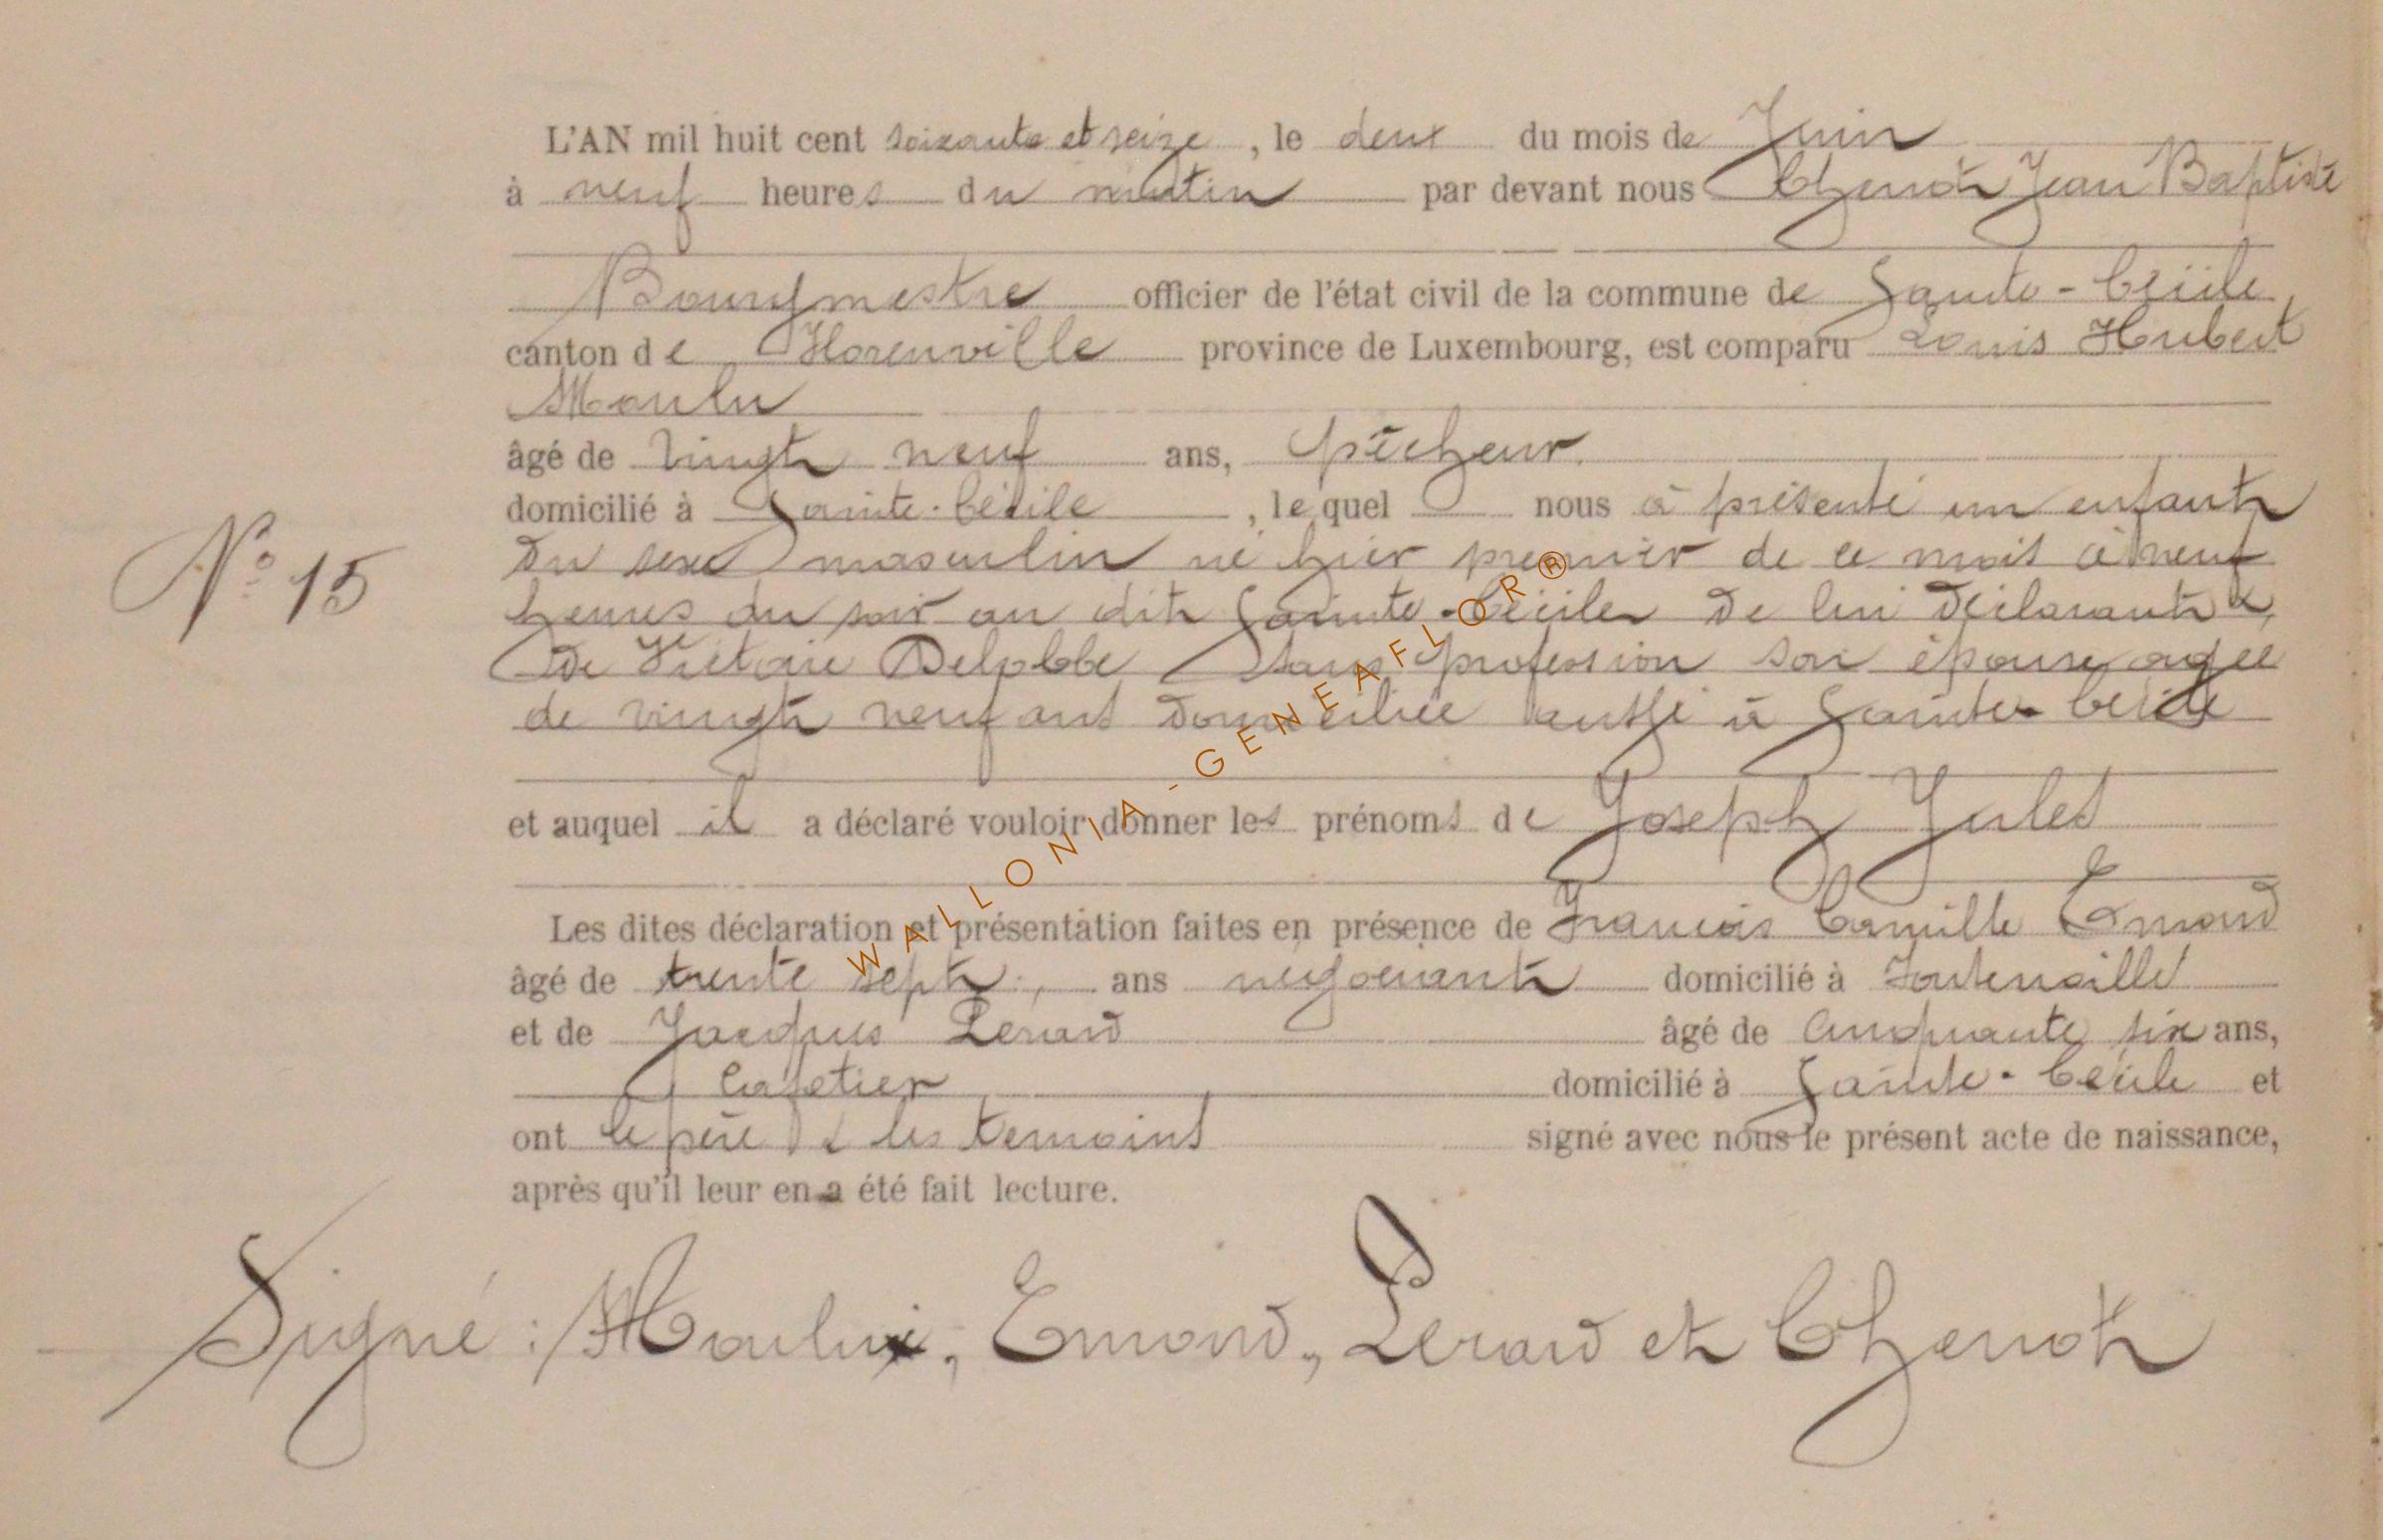 L'AN mil huit cent soixante et seize, le deux du mois de Juin
à neuf heures du matin par devant nous Chenot Jean Baptiste
Bourgmestre officier de l'état civil de la commune de Sainte-Cécile,
canton de Florenville province de Luxembourg, est comparu Louis Hubert
Moulu
âgé de vingt neuf ans, pêcheur.
domicilié à Sainte-Cécile, lequel nous à présenté un enfant
N° 15
du sexe masculin né hier premier de ce mois à neuf
heures du soir au dit Sainte-Cécile de lui déclarant &
de Victoire Delobbe sans profession son épouse agée
de vingt neuf ans domiciliée aussi à Sainte-Cécile
et auquel il a déclaré vouloir donner les prénoms de Joseph Jules
Les dites déclaration et présentation faites en présence de Francois Camille Emond
âgé de trente sept, ans négociant domicilié à Fontenoille
et de Jacques Lerard âgé de Cinquante six ans,
Cafetier domicilié à Sainte-Cécile et
ont le père & les temoins signé avec nous le présent acte de naissance,
après qu'il leur en a été fait lecture.
Signé : Moulu, Emond, Lerard et Chenot
WALLONIA-GENEAFLOR®